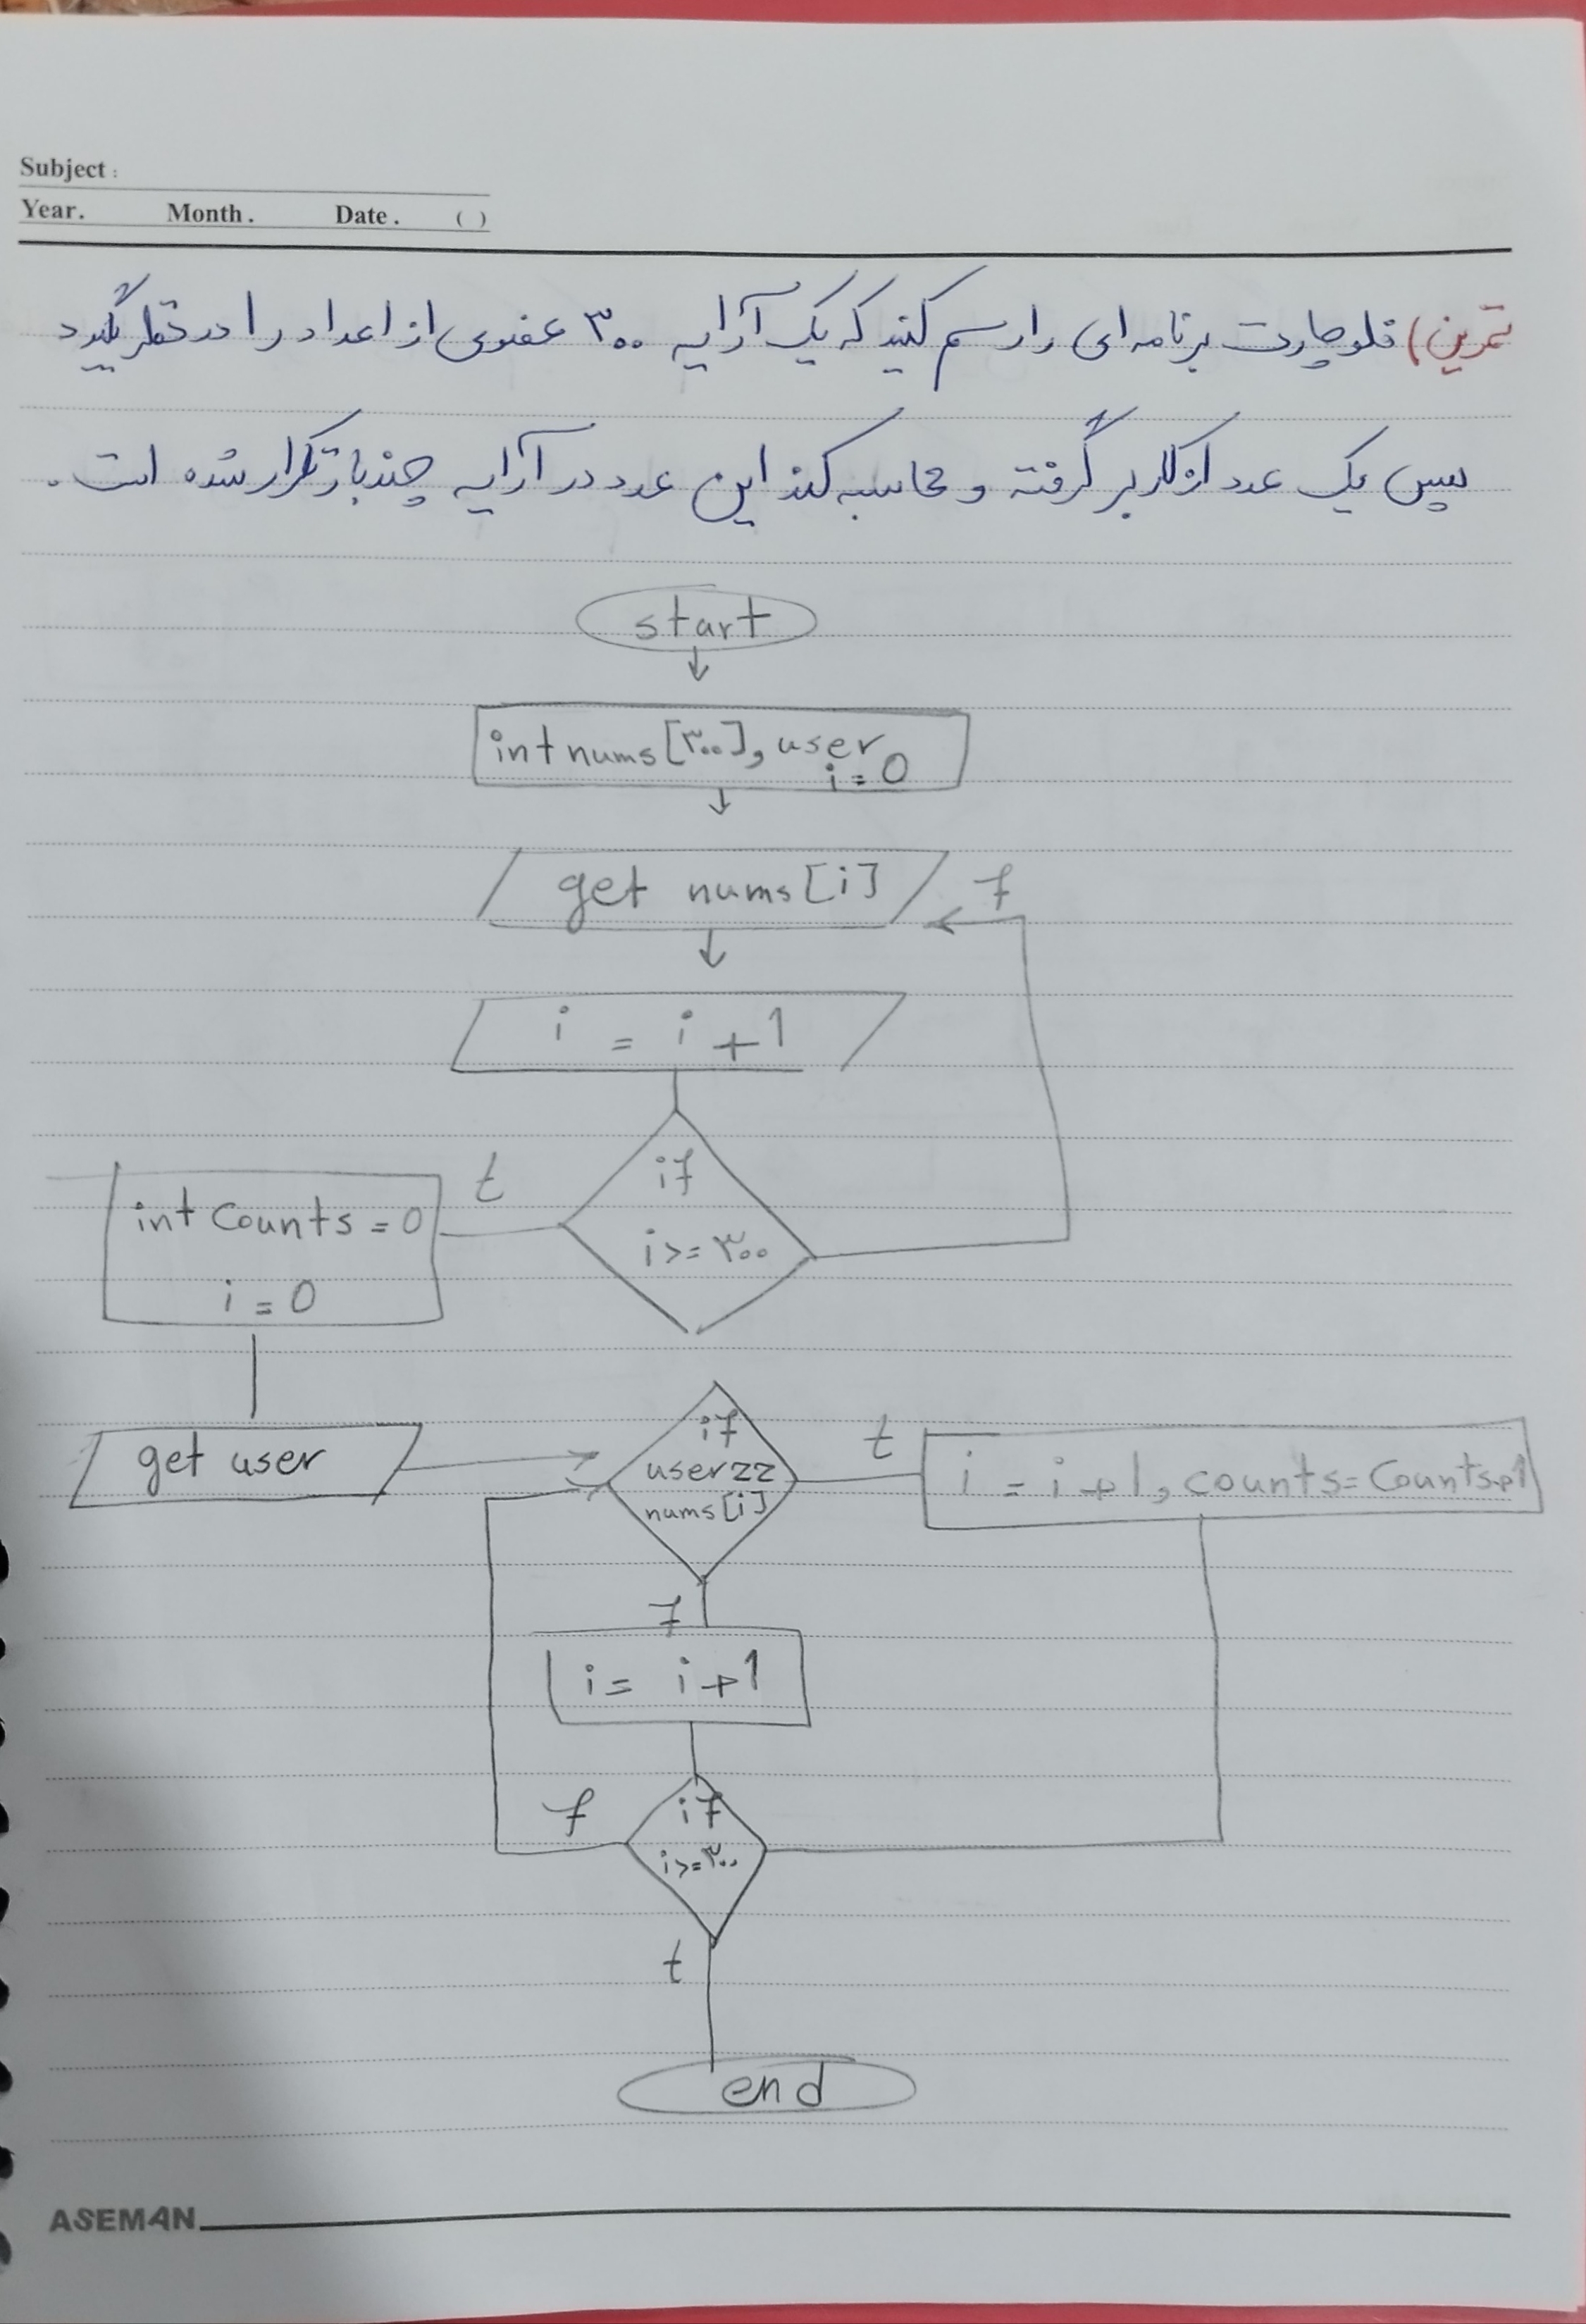 Subject :
Year. Month. Date. ( )
تمرین) فلوچارت برنامه‌ای را رسم کنید که یک آرایه ۳۰۰ عضوی از اعداد را در نظر بگیرد
سپس یک عدد از کاربر گرفته و محاسبه کند این عدد در آرایه چندبار تکرار شده است.
start
int nums[۳۰۰], user,
i = 0
get nums[i]
f
i = i +1
t
if
i >= ۳۰۰
int Counts = 0
i = 0
get user
if
user==
nums[i]
t
i = i+1, counts=Counts+1
f
i = i+1
f
if
i >= ۳۰۰
t
end
ASEMAN